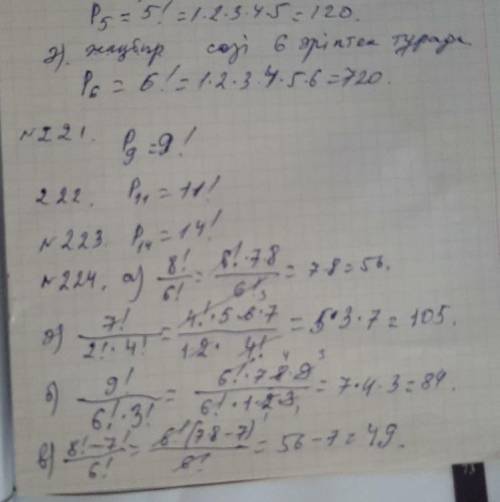 P₅ = 5! = 1·2·3·4·5 = 120.
ә). жаңбыр сөзі 6 әріптен тұрады
P₆ = 6! = 1·2·3·4·5·6 = 720.
№221. P₉ = 9!
222. P₁₁ = 11!
№223. P₁₄ = 14!
№224. а) 8!/6! = 6!·7·8/6! = 7·8 = 56.
ә) 7!/(2!·4!) = 4!·5·6·7/(1·2·4!) = 5·3·7 = 105.
б) 9!/(6!·3!) = 6!·7·8·9/(6!·1·2·3) = 7·4·3 = 84.
в) (8!-7!)/6! = 6!(7·8-7)/6! = 56-7 = 49.